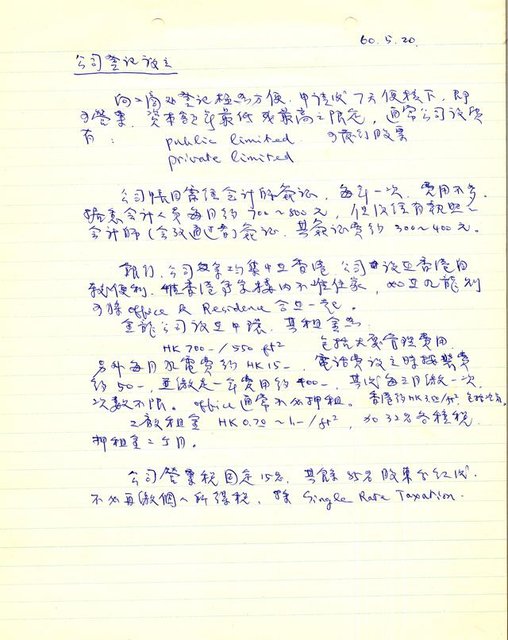 60. 5. 20.
公司登記設立
向工商處登記極為方便. 申請後 7天便核下, 即
可營業. 資本額無最低或最高之限定, 通常公司設
有： public limited 可發行股票
private limited
公司帳目需經會計師簽証, 每年一次, 費用不多.
會計人員每月約 700~800元, 但仍須有執照之
會計師 (合格通過者) 簽証, 其簽証費約 300~400元。
銀行, 公司 均集中在香港, 公司設在香港自
較便利, 惟香港 樓內不准住家, 如在九龍則
可將 office 及 Residence 合在一起。
在龍公司設在中環, 其租金為
HK 700-/550 ft² 包括大廈管理費用
另外每月水電費約 HK 15-, 電話費設立時接裝費
約 50-, 並繳足一年費用約 400-, 其後每三月繳一次
次數不限。office 通常不必押租。香港約HK 3/ft²,
工廠租金 HK 0.70~1-/ft², 加 32% 各種稅.
押租金二個月。
公司營業稅固定 15%, 其餘 85% 股東分紅後
不必再繳個人所得稅, 係 Single Rate Taxation.